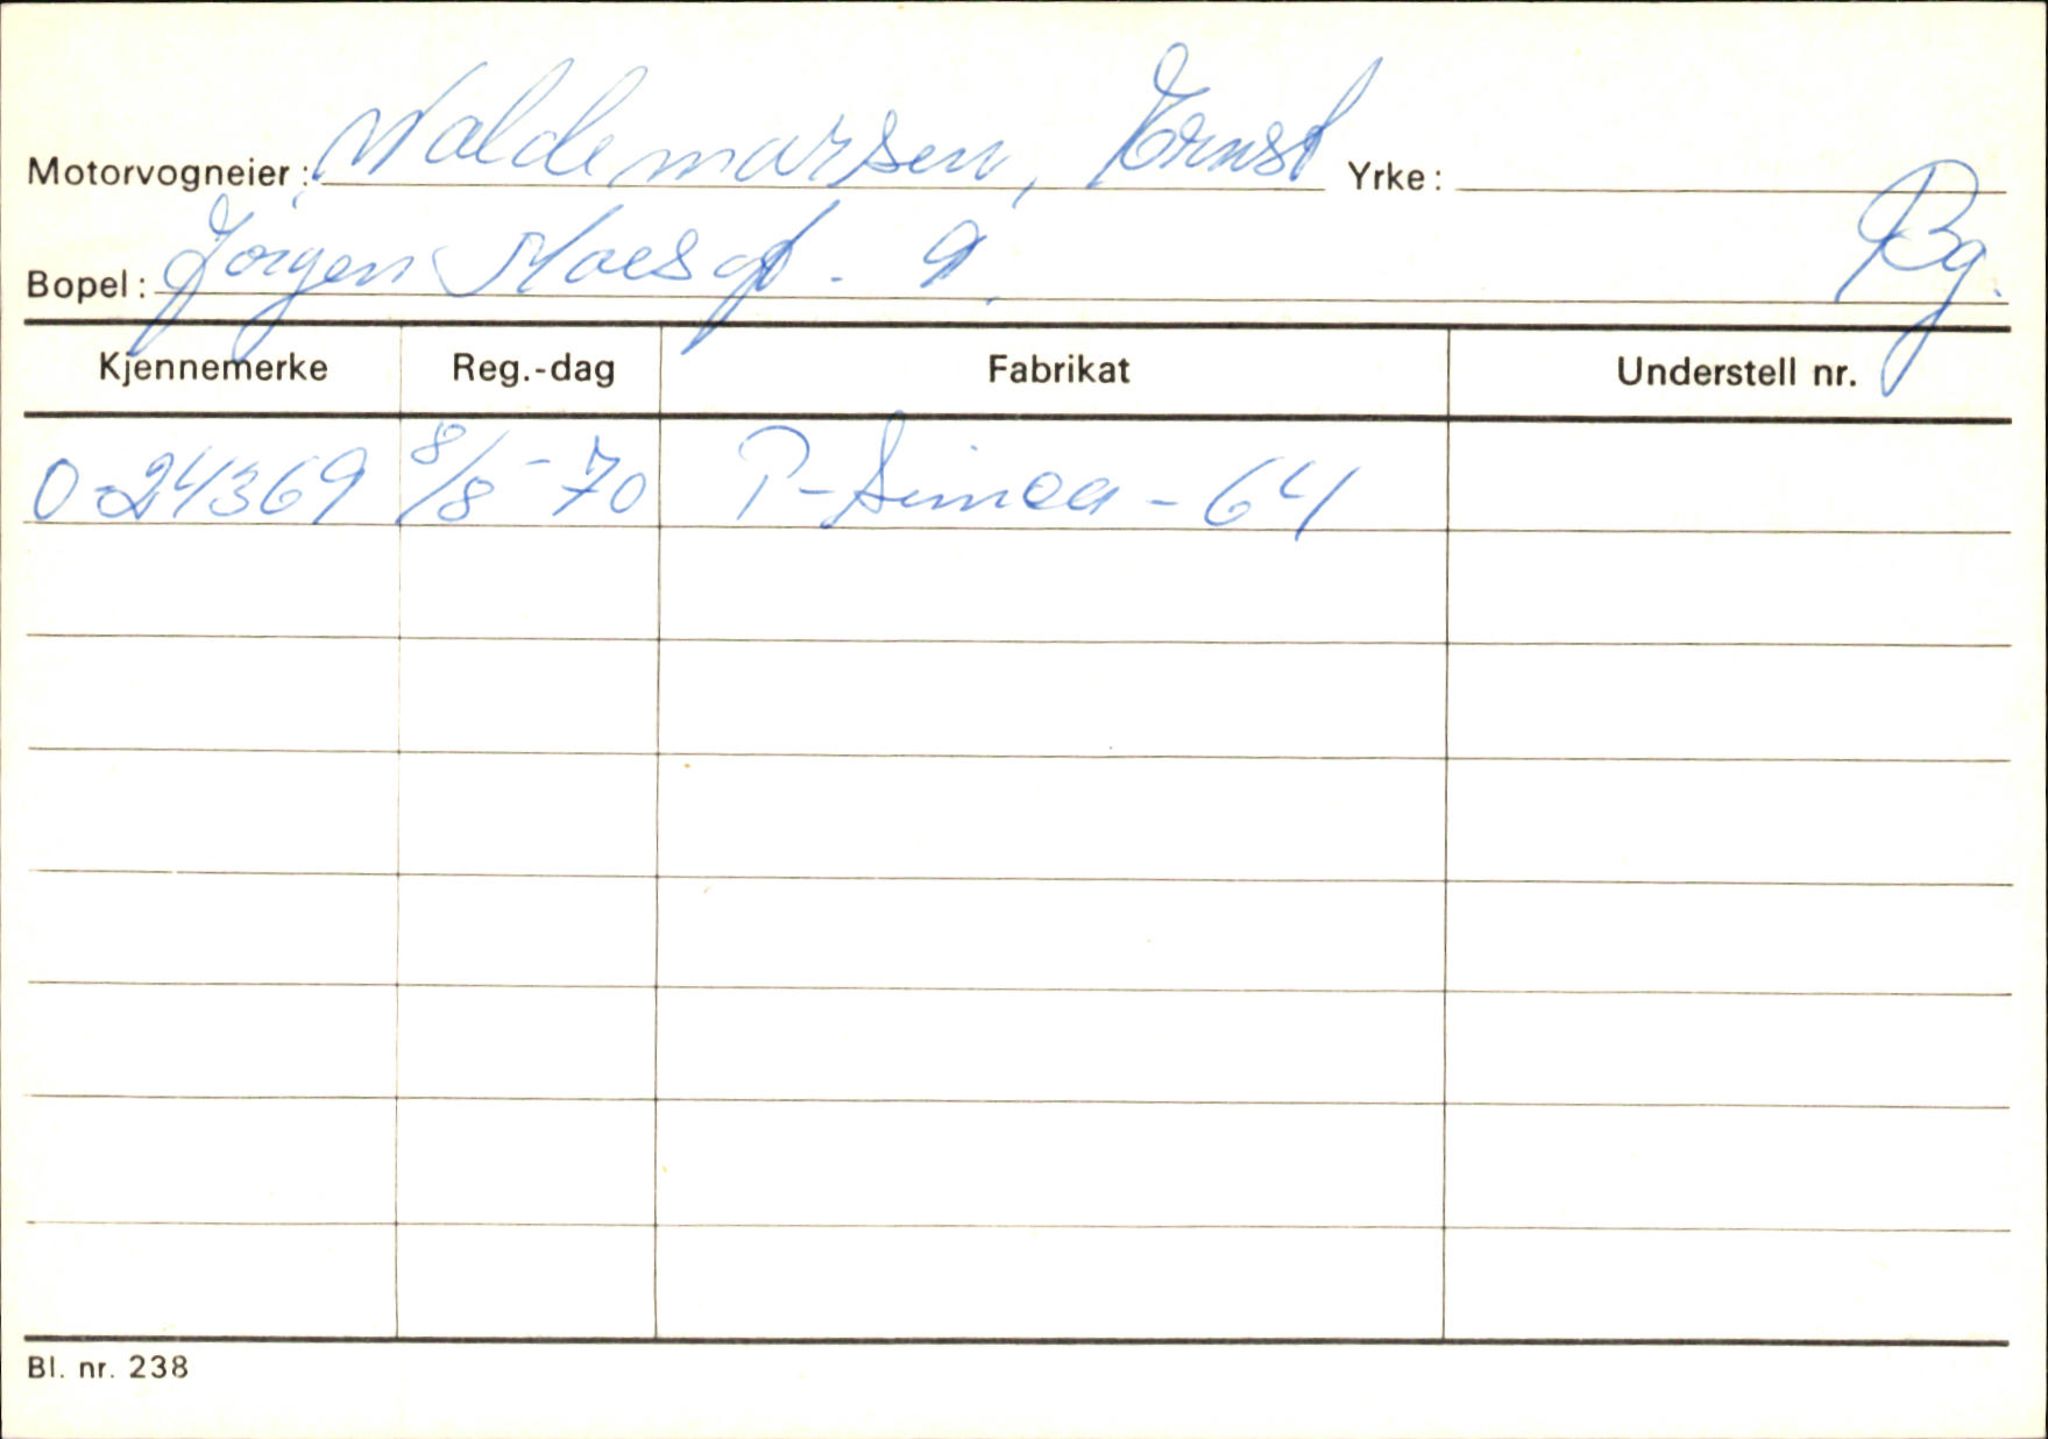 Motorvogneier: Waldemarsen, Ernst Yrke:
Bopel: Jörgen Moesgt. 9. Bg.
Kjennemerke Reg.-dag Fabrikat Understell nr.
O-24369 8/8-70 P-Simca-64
Bl. nr. 238